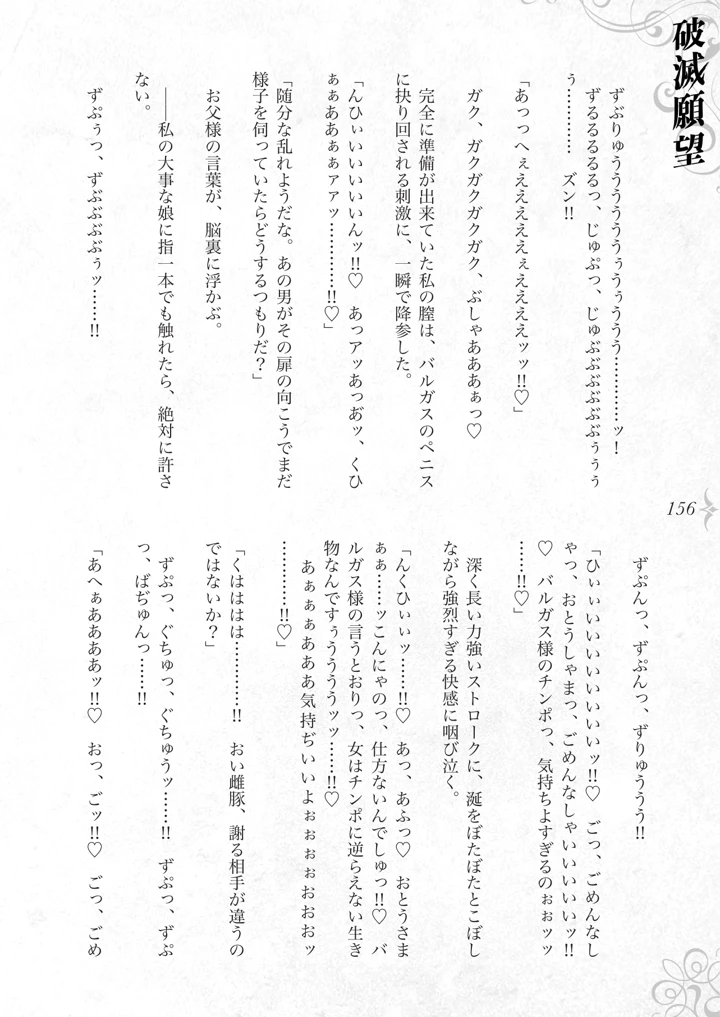 破滅願望
ずぶりゅうううううぅうぅううう…………ッ！
ずるるるるっ、じゅぷっ、じゅぶぶぶぶぶぶぅぅぅ
ぅ…………　ズン!!
「あっっへぇえええええぇええええッッ!!♡」
ガク、ガクガクガクガク、ぶしゃあああぁっ♡
完全に準備が出来ていた私の膣は、バルガスのペニス
に抉り回される刺激に、一瞬で降参した。
「んひぃいいいいいいんッ!!♡　あっアッあっあ゛ッ、くひ
ぁぁああぁぁァアッ…………!!♡」
「随分な乱れようだな。あの男がその扉の向こうでまだ
様子を伺っていたらどうするつもりだ？」
お父様の言葉が、脳裏に浮かぶ。
――私の大事な娘に指一本でも触れたら、絶対に許さ
ない。
ずぷぅっ、ずぶぶぶぶぅッ……!!
156
ずぷんっ、ずぷんっ、ずりゅううう!!
「ひぃぃいいいいいいいいいッ!!♡　ごっ、ごめんなし
ゃっ、おとうしゃまっ、ごめんなしゃいいいいいッ!!
♡　バルガス様のチンポっ、気持ちよすぎるのぉぉッッ
……!!♡」
深く長い力強いストロークに、涎をぼたぼたとこぼし
ながら強烈すぎる快感に咽び泣く。
「んくひぃぃッ……!!♡　あっ、あふっ♡　おとうさま
ぁぁ……ッこんにゃのっ、仕方ないんでしゅっ!!♡　バ
ルガス様の言うとおりっ、女はチンポに逆らえない生き
物なんですぅううううッッ……!!♡
あぁぁぁあああ気持ぢいいよぉぉぉぉおおおッ
…………!!♡」
「くはははは…………!!　おい雌豚、謝る相手が違うの
ではないか？」
ずぷっ、ぐちゅっ、ぐちゅうッ……!!　ずぷっ、ずぷ
っ、ばぢゅんっ……!!
「あへぁああああッ!!♡　おっ、ごッ!!♡　ごっ、ごめ